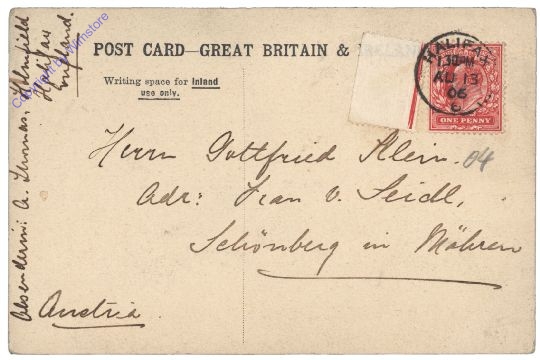 POST CARD—GREAT BRITAIN &
Writing space for Inland
use only.
HALIFAX
1.30PM
AU 13
06
ONE PENNY
Herrn Gottfried Klein.
04
Adr: Frau v. Seidl,
Schönberg in Mähren
Austria.
Absenderin: A. Thomas, Holmfield
Halifax
England.